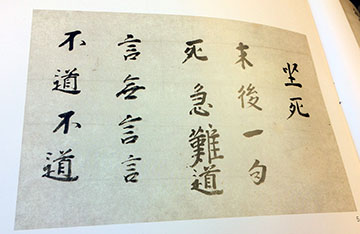 坐死
末後一句
死急難道
言無言言
不道不道
5